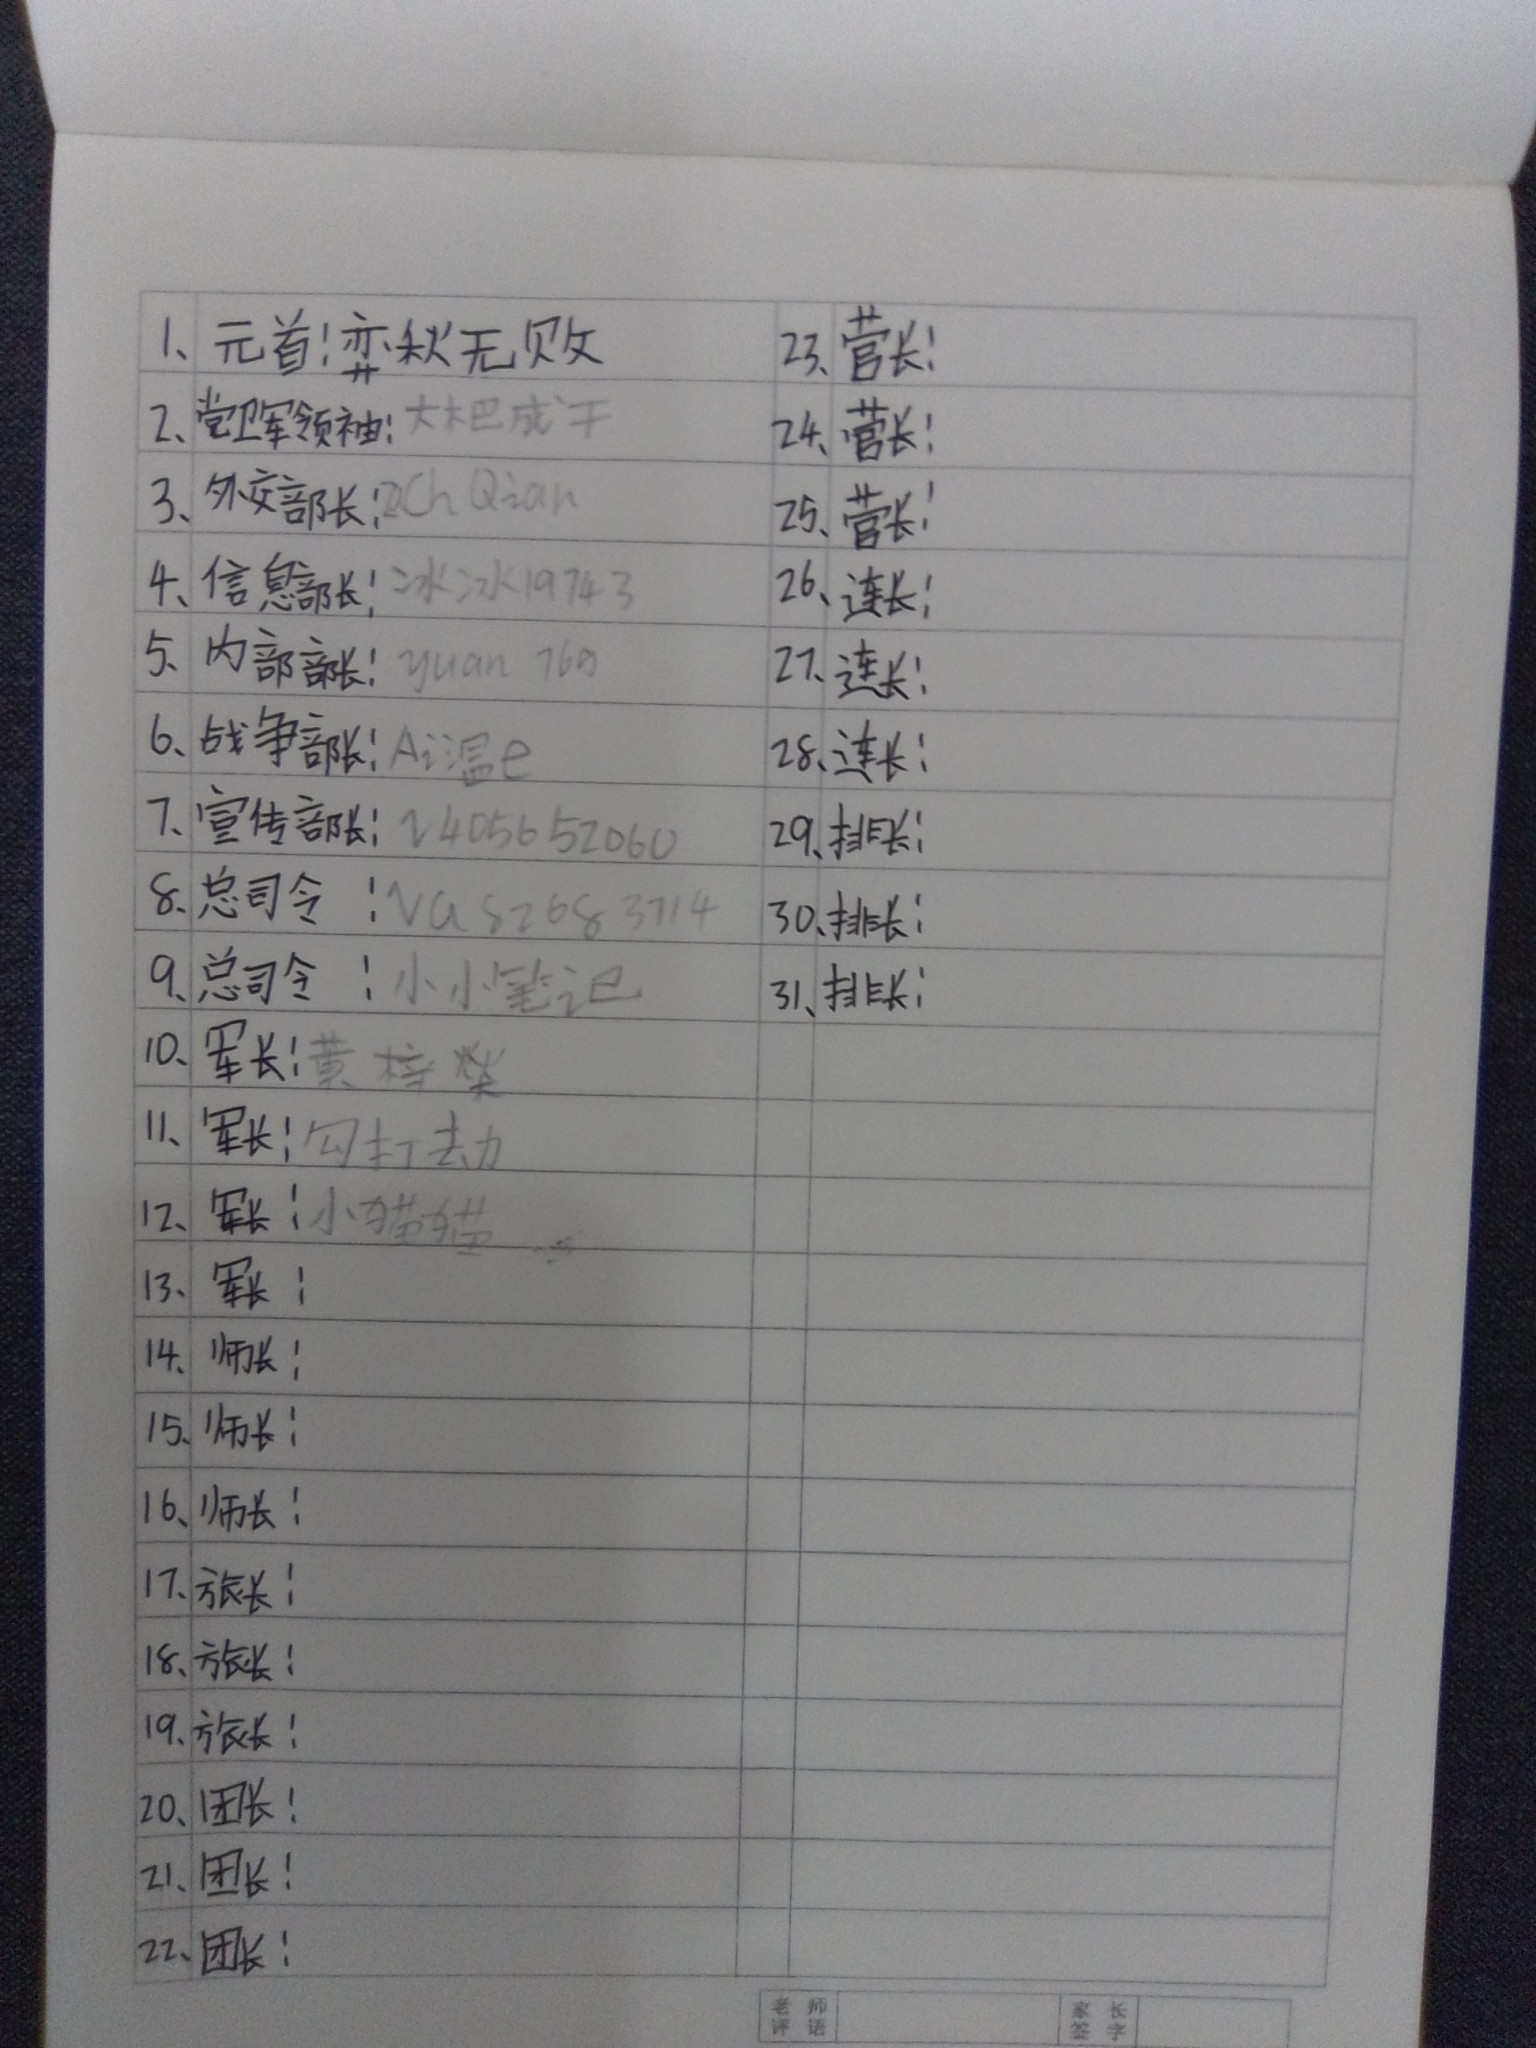 1、元首：弈秋无败
2、党卫军领袖：大木巴成干
3、外交部长：Ch Qian
4、信息部长：冰冰19743
5、内部部长：yuan 769
6、战争部长：Ai温e
7、宣传部长：2405652060
8、总司令：Va82683714
9、总司令：小小笔记
10、军长：黄梓
11、军长：勾打去力
12、军长：小猫猫
13、军长：
14、师长：
15、师长：
16、师长：
17、旅长：
18、旅长：
19、旅长：
20、团长：
21、团长：
22、团长：
23、营长：
24、营长：
25、营长：
26、连长：
27、连长：
28、连长：
29、排长：
30、排长：
31、排长：
老师评语
家长签字